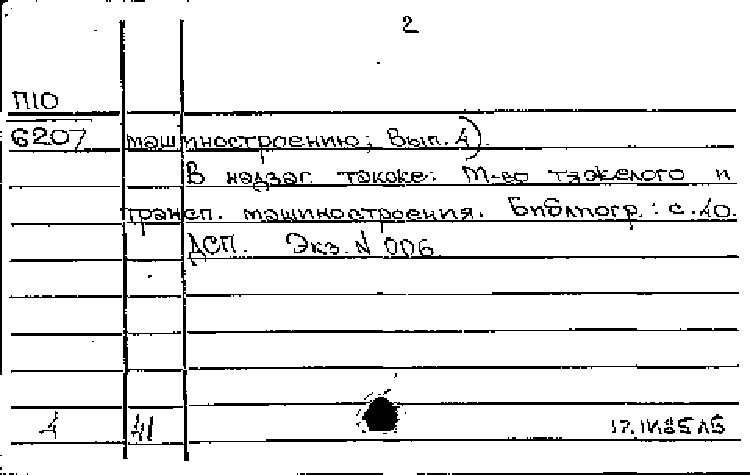 2
П10
6207 машиностроению; Вып. 4)
В надзаг. также: М-во тяжелого и
трансп. машиностроения. Библиогр.: с. 40.
ДСП. Экз. N 006
41